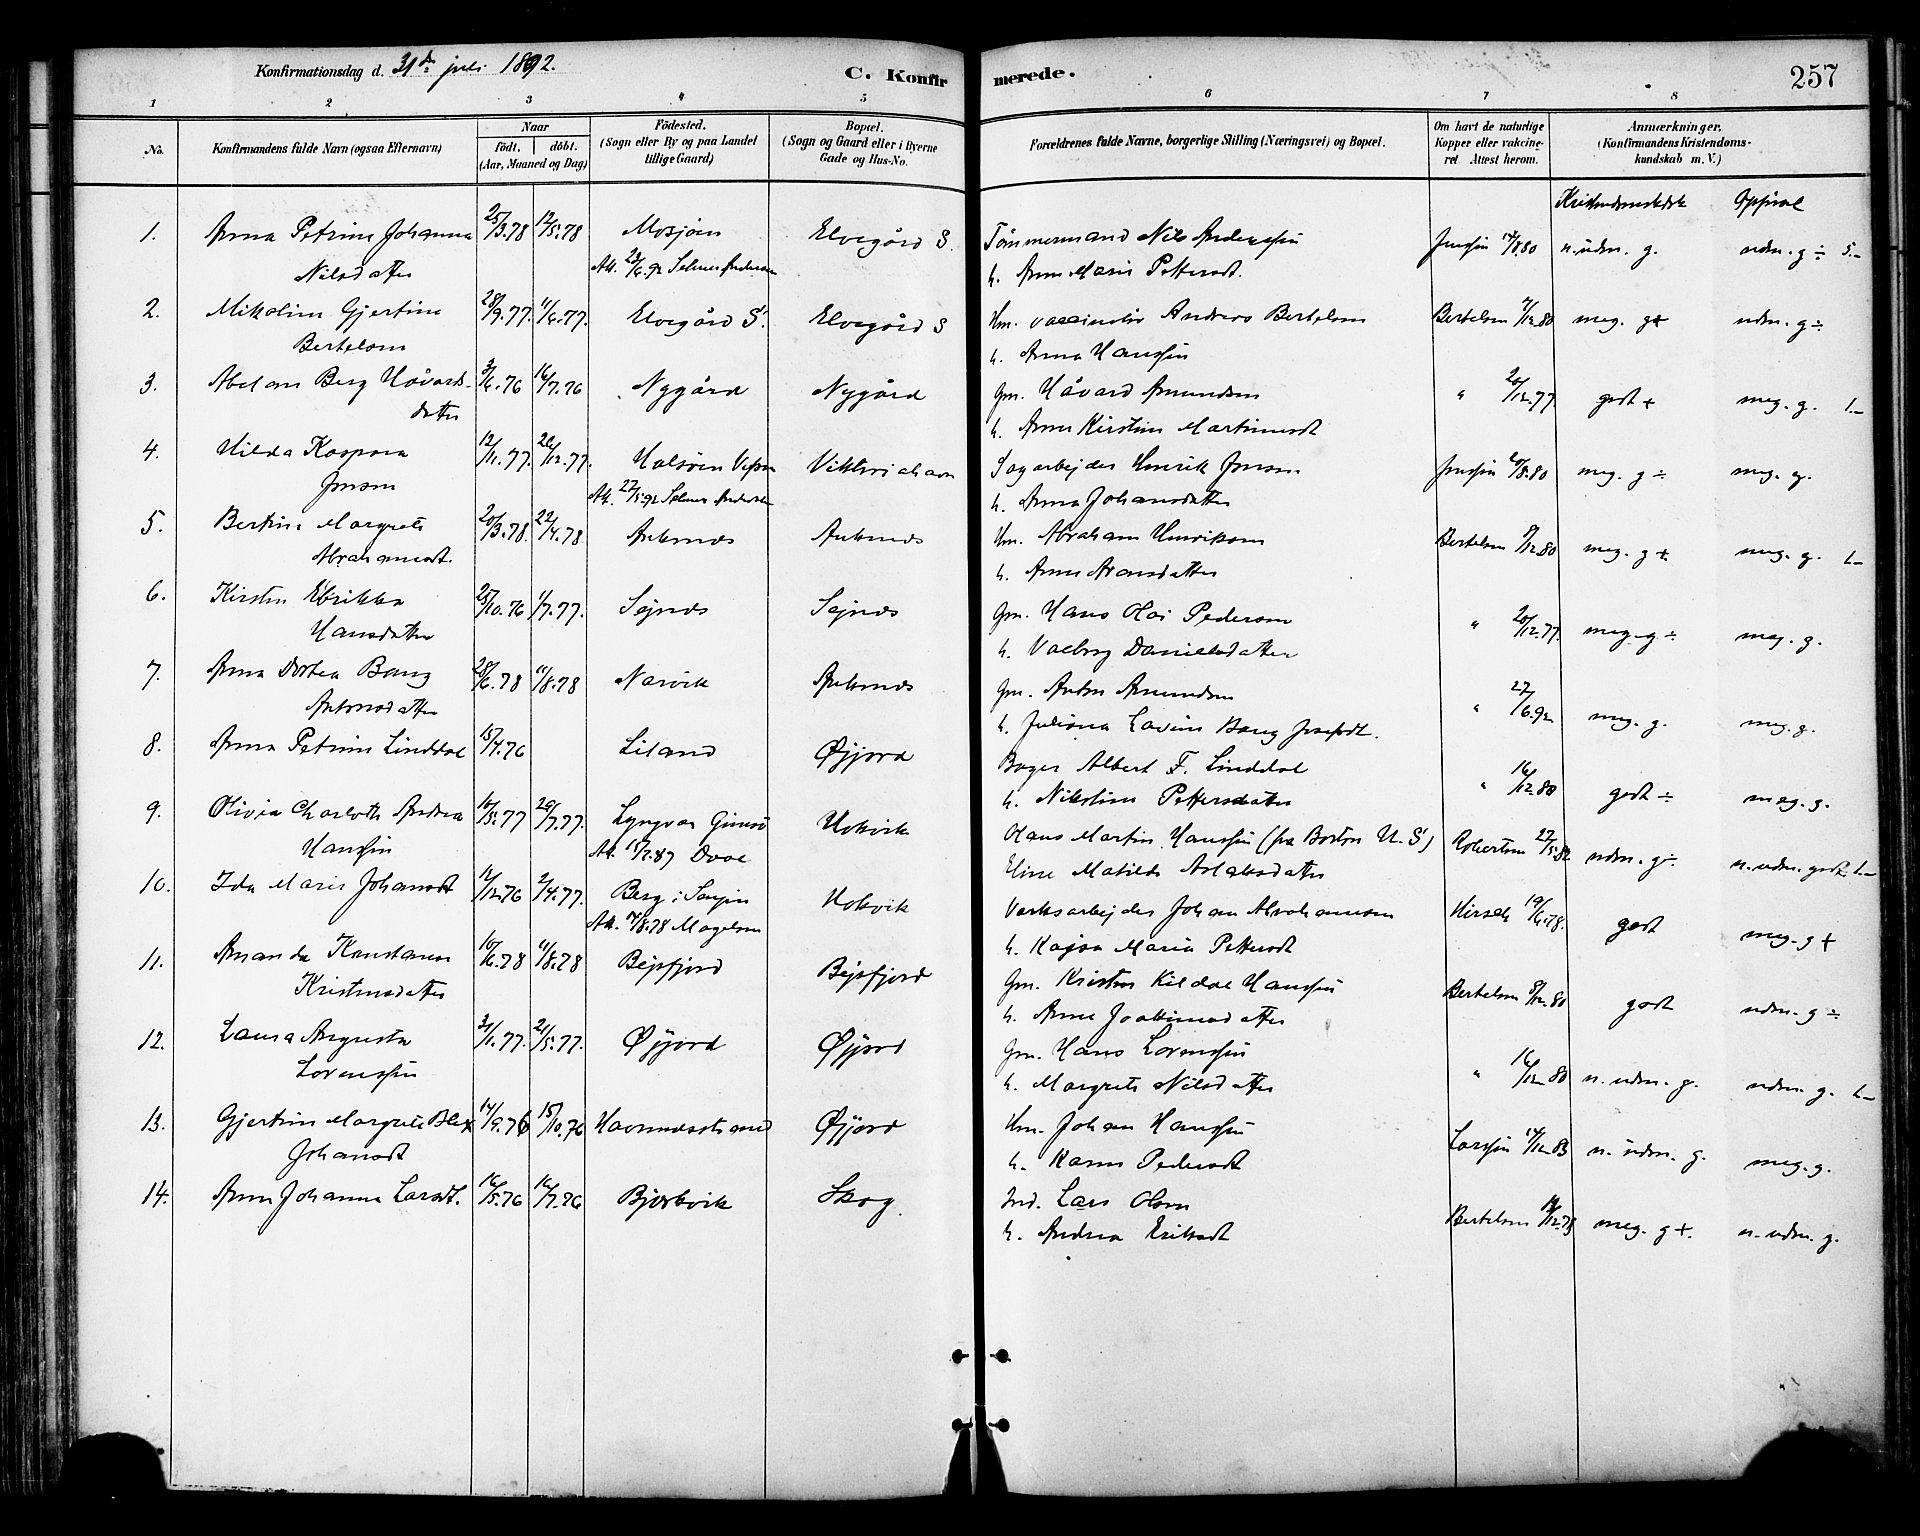 Konfirmationsdag d. 31te juli 1892.
C. Konfirmerede.
257
1 2 3 4 5 6 7 8
No.
Konfirmandens fulde Navn (ogsaa Efternavn)
Naar
födt. döbt.
(Aar, Maaned og Dag)
Födested.
(Sogn eller By og paa Landet
tillige Gaard)
Bopæl.
(Sogn og Gaard eller i Byerne
Gade og Hus-No.
Forældrenes fulde Navne, borgerlige Stilling (Næringsvei) og Bopæl.
Om havt de naturlige
Kopper eller vakcine-
ret Attest herom.
Anmærkninger.
(Konfirmandens Kristendoms-
kundskab m. V.)
Kristendomskdsk Opførsel
1. Anna Petrine Johanna 25/3.78 12/5.78 Mosjøen Elvegård S. Tømmermand Nils Anderssen 14/8.80 n. udm. g. udm. g ÷ 5.-
Nilsdatter Att. 23/6.92 Selmer Andersen h. Anne Marie Pettersdt.
2. Mikoline Gjertine 28/2.77. 11/6.77. Elvegård S. Elvegård S Hm. vaccinatør Andreas Bertelsen Bertelsen 7/12.80 meg. g+ udm. g ÷
Bertelsen h. Anna Hanssen
3. Abelone Berg Håvards- 3/6.76 16/7.76 Nygård Nygård Gm. Håvard Amundsen " 20/12.77 godt + meg. g. 1.-
datter h. Anne Kirstine Martinusdt
4. Hilda Kaspara 12/11.77. 26/12.77. Halsøen Vefsn Viktoriahavn Sagarbejder Henrik Jensen Jenssen 20/8.80 meg. g ÷ meg. g.
Jensen Att. 27/5.92 Selmer Andersen h. Anna Johansdatter
5. Bertine Margrete 20/3.78. 22/4.78 Ankenes Ankenes Hm. Abraham Henriksen Bertelsen 8/12.80 meg. g + meg. g. 1.-
Abrahamsdt. h. Anne Aronsdatter
6. Kirsten Ebrikka 25/10.76 1/7.77. Sejnes Sejnes Gm. Hans Hoi Pedersen " 20/12.77. meg. g ÷ meg. g.
Hansdatter h. Valborg Danielsdatter
7. Anna Dortea Bang 28/6.78 11/8.78 Narvik Ankenes Gm. Anton Amundsen " 27/6.92 meg. g. meg. g.
Antonsdatter h. Juliana Lavine Bang Josefsdt.
8. Anna Petrine Linddal 15/7.76 Liland Øjjord Bager Albert F. Linddal " 16/12.80 godt ÷ meg. g.
h. Nikoline Pettersdatter
9. Olivia Charlotte Andrea 10/5.77 29/7.77. Lyngvær Gimsø Hokvik Hans Martin Hanssen (fra Boston U. S.) Robertsen 27/5.82 udm. g ÷ n. udm. godt 1.-
Hanssen Att. 15/7.87 Dvae Eline Matilde Aslaksdatter
10. Ida Marie Johansdt 12/12.76 2/4.77. Berg i Senjen Hokvik Værksarbejder Johan Abrahamsen Hirsch 19/6.78. godt meg. g +
Att. 4/8.78 Magelsen h. Kajsa Maria Pettersdt
11. Amanda Konstanse 10/6.78 11/8.78 Bejsfjord Bejsfjord Gm. Kristen Kildal Hanssen Bertelsen 8/12.80 godt udm. g ÷
Kristensdatter h. Anne Joakimsdatter
12. Laura Augusta 31/1.77. 21/5.77. Øjjord Øjjord Gm. Hans Lorenssen " 16/12.80 n. udm. g. udm. g. 1.-
Lorenssen h. Margrete Nilsdatter
13. Gjertine Margrete Blix 14/9.76 15/10.76 Havnnesstrand Øjjord Hm. Johan Hanssen Larssen 14/12.83 n. udm. g. meg. g.
Johansdt h. Karen Pedersdt
14. Anne Johanna Larsdt. 16/5.76 16/7.76 Bjerkvik Skog Ind. Lars Olsen Bertelsen 19/12.79 meg. g +. n. udm. g.
h. Andrea Eriksdt